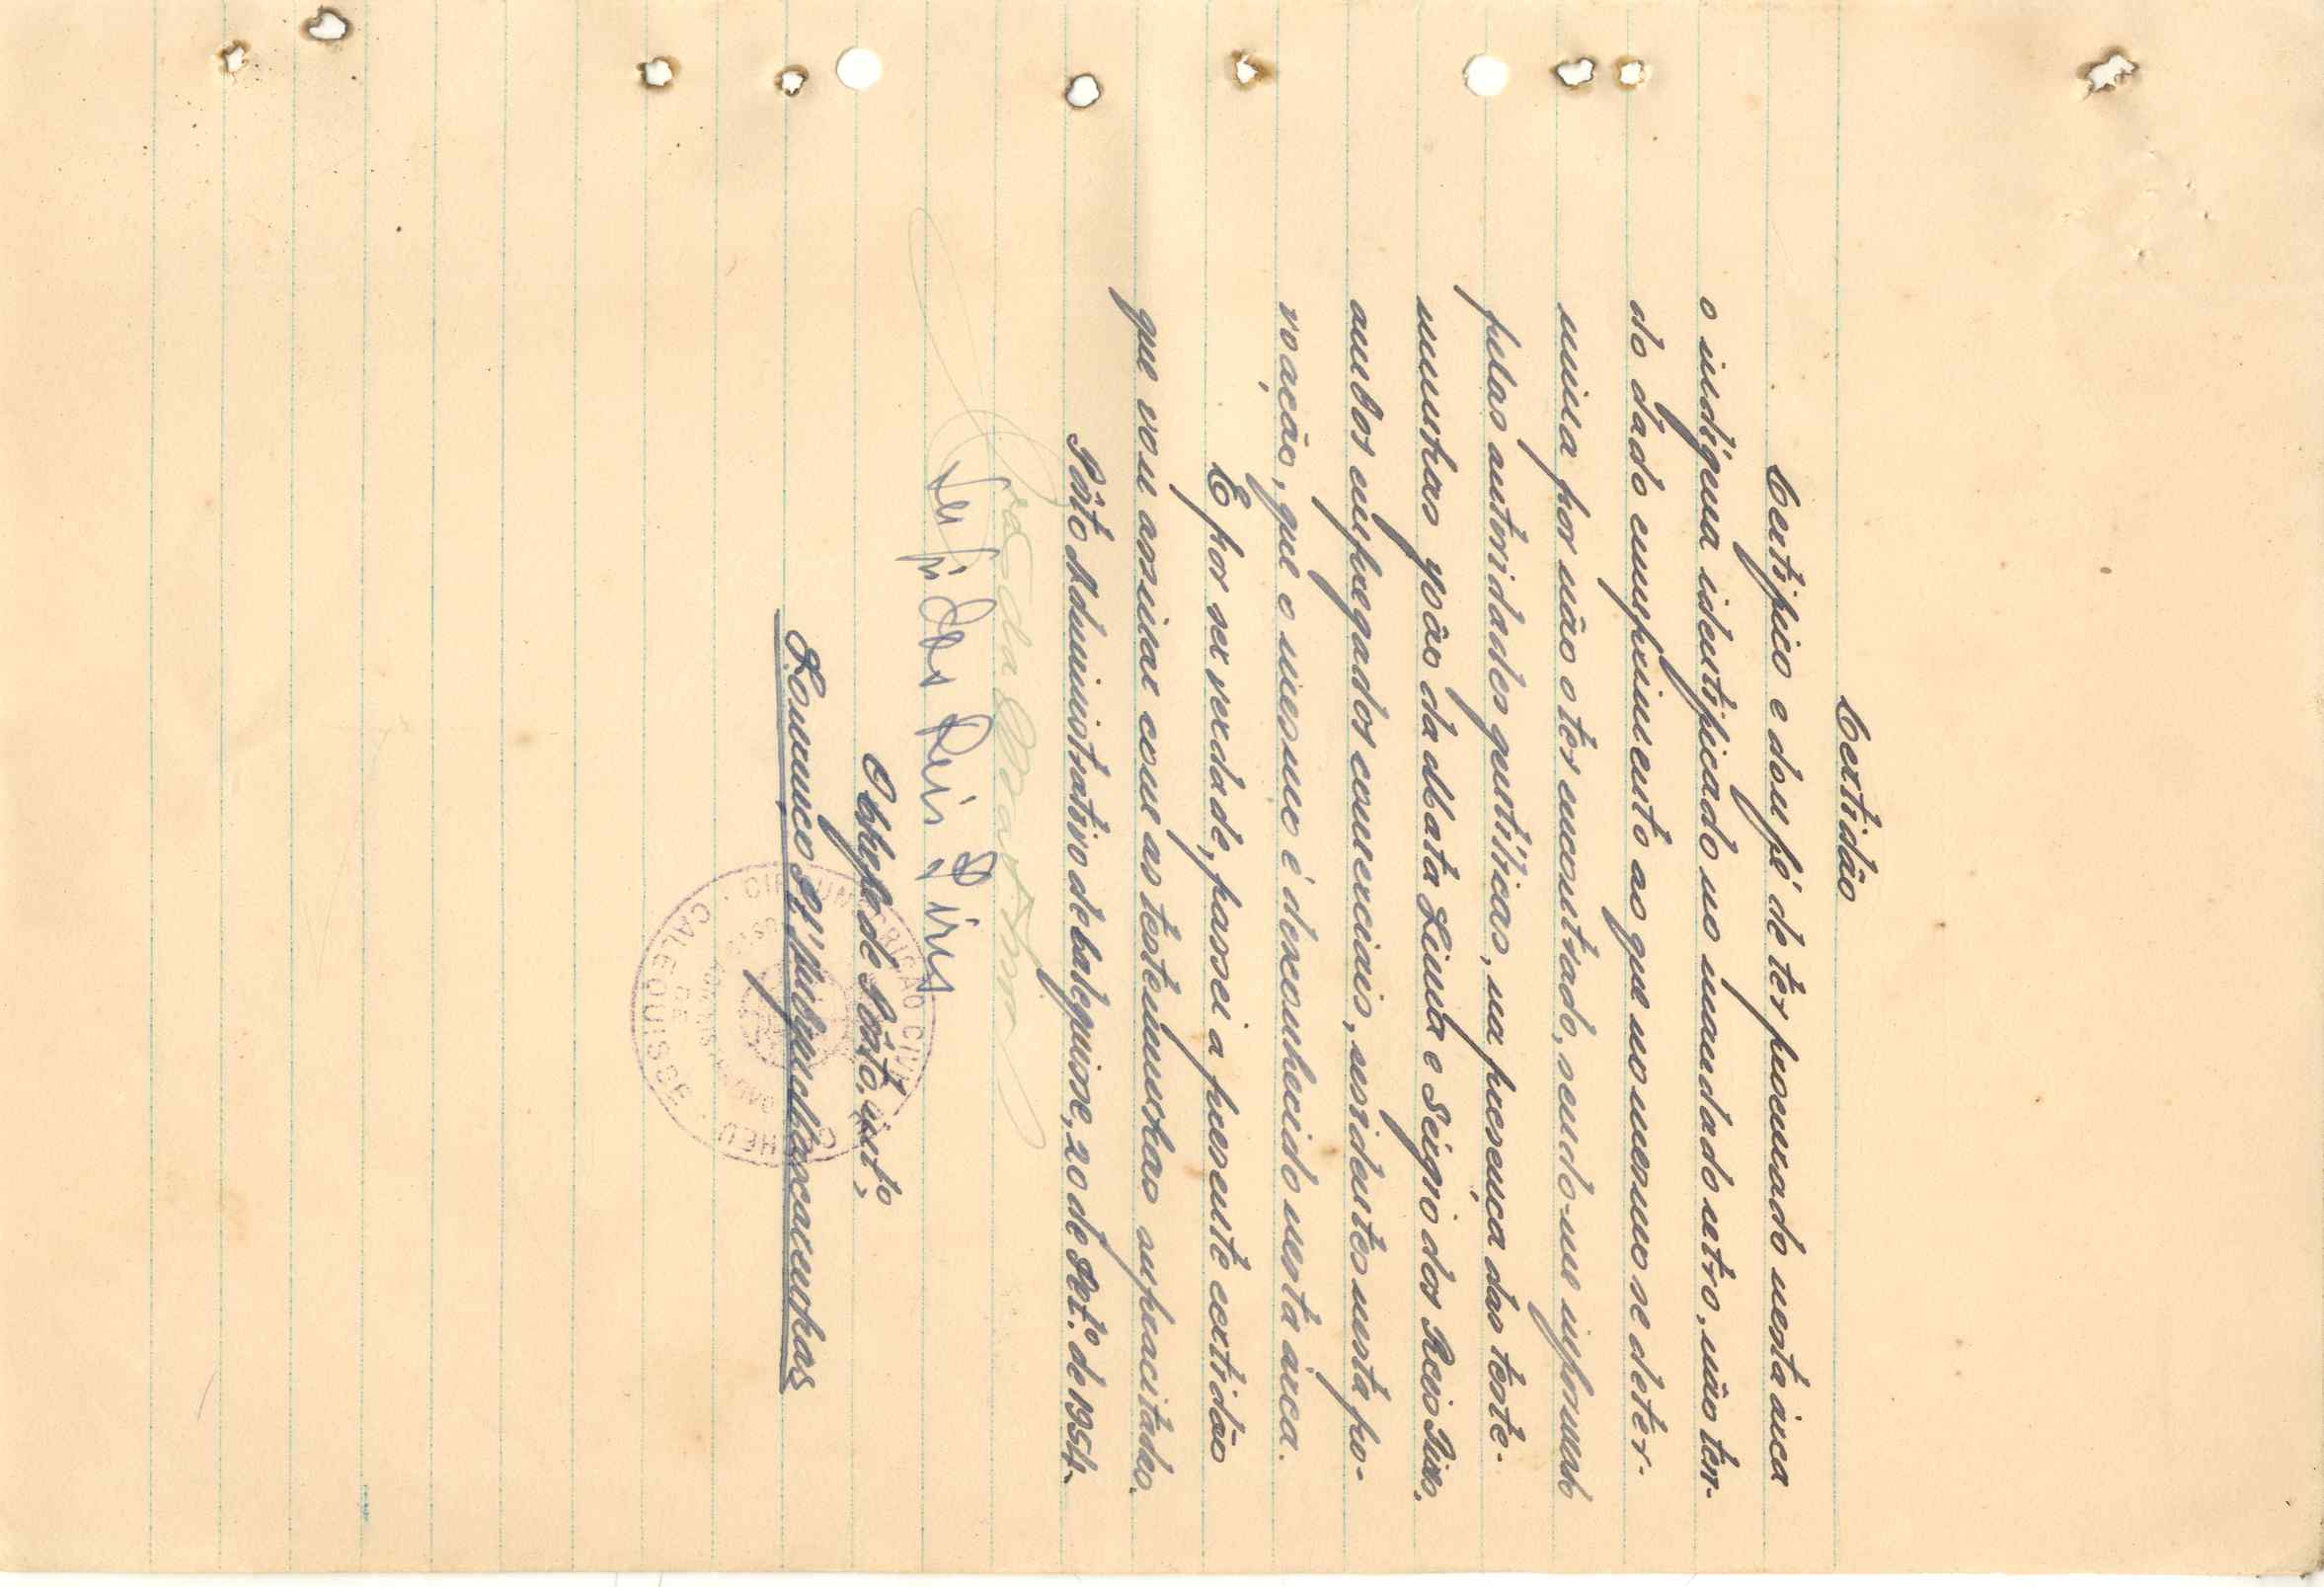 Certidão
Certifico e dou fé de ter procurado nesta área
o indígena identificado no mandado retro, não ten-
do dado cumprimento ao que no mesmo se deter-
mina por não o ter encontrado, sendo-me informado
pelas autoridades gentílicas, na presença das teste-
munhas João da Mata Lima e Sérgio dos Reis Pires,
ambos empregados comerciais, residentes nesta po-
voação, que o mesmo é desconhecido nesta área.
E por ser verdade, passei a presente certidão
que vou assinar com as testemunhas supracitadas.
Pôsto Administrativo de Calequisse, 20 de Set.º de 1954.
João da Mata Lima
Sérgio dos Reis Pires
O Chefe de Pôsto, intº,
Lourenço
CIRCUNSCRIÇÃO CIVIL
CALEQUISSE
DE